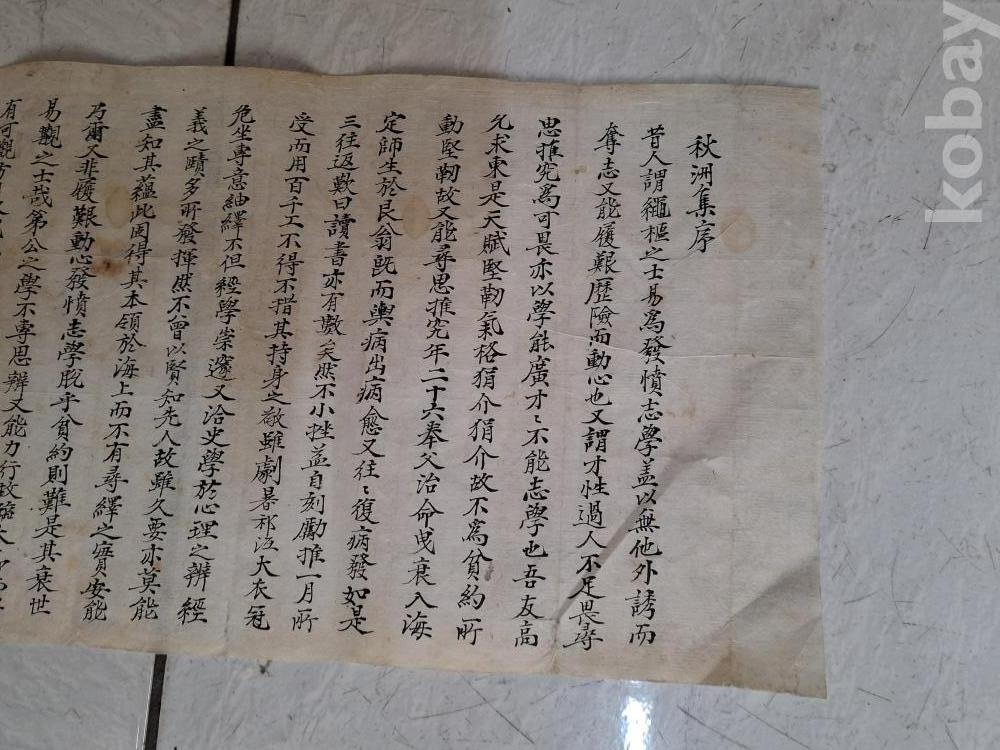 秋洲集序
昔人謂繩樞之士易爲發憤志學盖以無他外誘而
奪志又能履艱歷險而動心也又謂才性過人不足畏尋
思推究爲可畏亦以學能廣才〻不能志學也吾友高
允求東是天賦堅韌氣格狷介狷介故不爲貧約所
動堅韌故又能尋思推究年二十六奉父治命曳衰入海
定師生於艮翁旣而輿病出病愈又往〻復病發如是
三往返歎曰讀書亦有數矣然不小挫益自刻勵推一月所
受而用百千工不得不措其持身之敬雖劇暑祁冱大衣冠
危坐專意紬繹不但經學崇邃又洽史學於心理之辨經
義之賾多所發揮然不曾以賢知先人故雖久要亦莫能
盡知其蘊此固得其本領於海上而不有尋繹之實安能
乃爾又非履艱動心發憤志學脫乎貧約則難是其衰世
易觀之士哉第公之學不專思辨又能力行故
有可觀
kobay